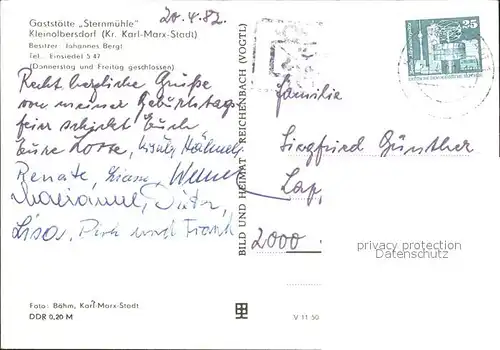 20.4.82.
Gaststätte „Sternmühle"
Kleinolbersdorf (Kr. Karl-Marx-Stadt)
Besitzer Johannes Bergt
Tel. Einsiedel 5 47
(Donnerstag und Freitag geschlossen)
Recht herzliche Grüße
von meiner Geburtstags
feier schickt Euch
Eure Lotte,
Renate, Werner
Marianne, Dieter,
Lisa. Dirk und Frank
Foto: Böhm, Karl-Marx-Stadt
DDR 0,20 M
BILD UND HEIMAT REICHENBACH (VOGTL)
V 11 50
25
Familie
Siegfried Günther
2000
privacy protection
Datenschutz